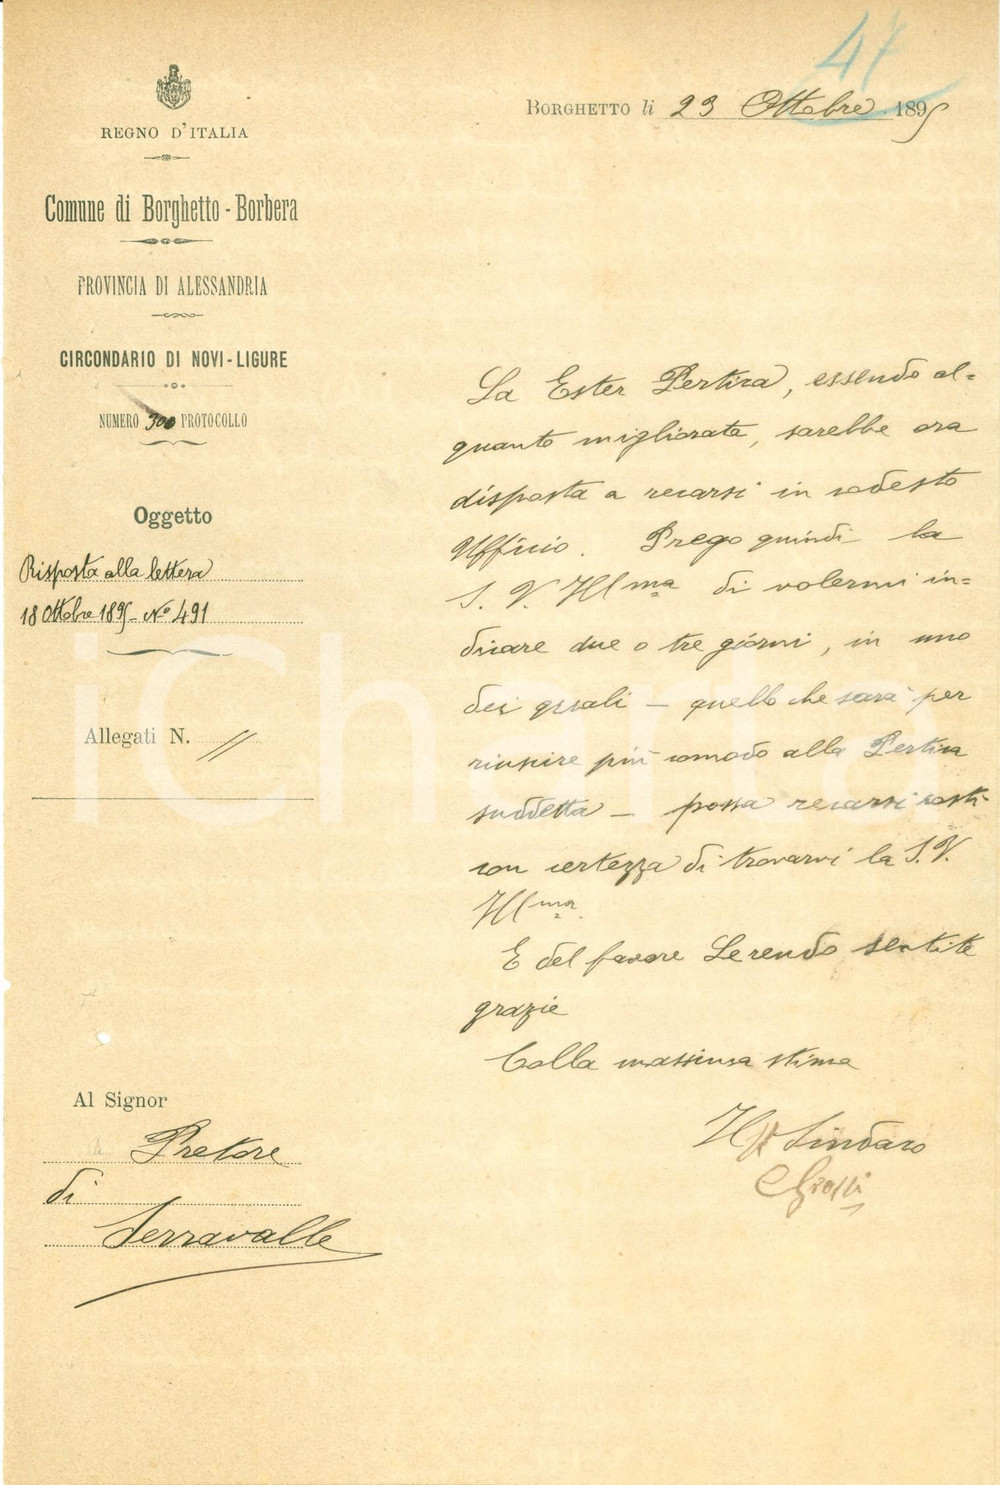 47
REGNO D'ITALIA
Comune di Borghetto-Borbera
PROVINCIA DI ALESSANDRIA
CIRCONDARIO DI NOVI-LIGURE
NUMERO 300 PROTOCOLLO
Oggetto
Risposta alla lettera
18 Ottobre 1895 - No 491
Allegati N. //
Al Signor
Pretore
di
Serravalle
BORGHETTO li 23 Ottobre 1895
La Ester Pertica, essendo al=
quanto migliorata, sarebbe ora
disposta a recarsi in codesto
Ufficio. Prego quindi la
S. V. Ill ma di volermi in=
dicare due o tre giorni, in uno
dei quali - quello che sarà per
riuscire più comodo alla Pertica
suddetta - possa recarsi costì
con certezza di trovarvi la S. V.
Ill ma.
E del favore Le rendo sentite
grazie
Colla massima stima
Il Sindaco
Grossi
iCharta